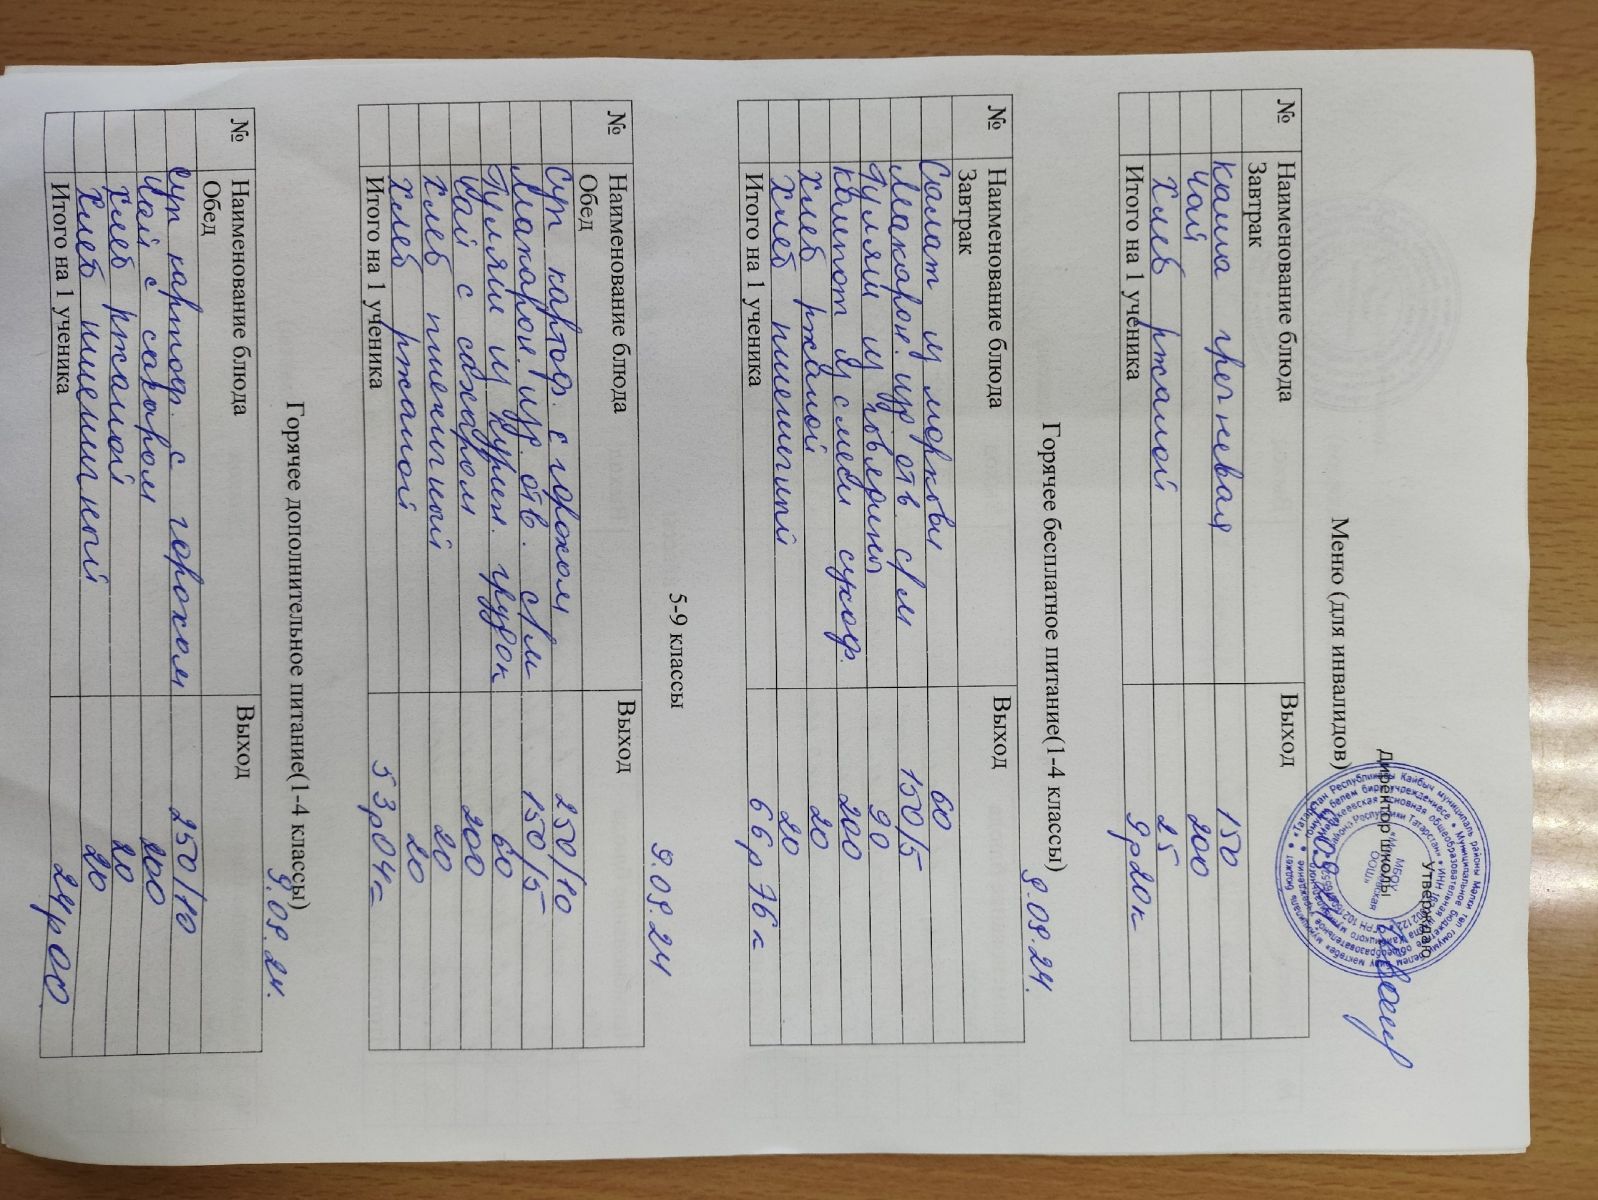 Утверждаю
Директор школы
МБОУ
ООШ»
Меню (для инвалидов)
№ Наименование блюда Выход
Завтрак
Каша гречневая 150
Чай 200
Хлеб ржаной 25
Итого на 1 ученика 9р20к
Горячее бесплатное питание(1-4 классы)
9.09.24.
№ Наименование блюда Выход
Завтрак
Салат из моркови 60
Макарон. изр отв. с/м 150/5
Гуляш из говядины 90
Компот из смеси сухоф. 200
Хлеб ржаной 20
Хлеб пшеничный 20
Итого на 1 ученика 66р76к
5-9 классы
9.09.24
№ Наименование блюда Выход
Обед
Суп картоф. с горохом 250/10
Макарон. изр. отв. с/м 150/5
Гуляш из курин. грудок 60
Чай с сахаром 200
Хлеб пшеничный 20
Хлеб ржаной 20
Итого на 1 ученика 53р04к
Горячее дополнительное питание(1-4 классы)
9.09.24.
№ Наименование блюда Выход
Обед
Суп картоф. с горохом 250/10
Чай с сахаром 200
Хлеб ржаной 20
Хлеб пшеничный 20
Итого на 1 ученика 24р00